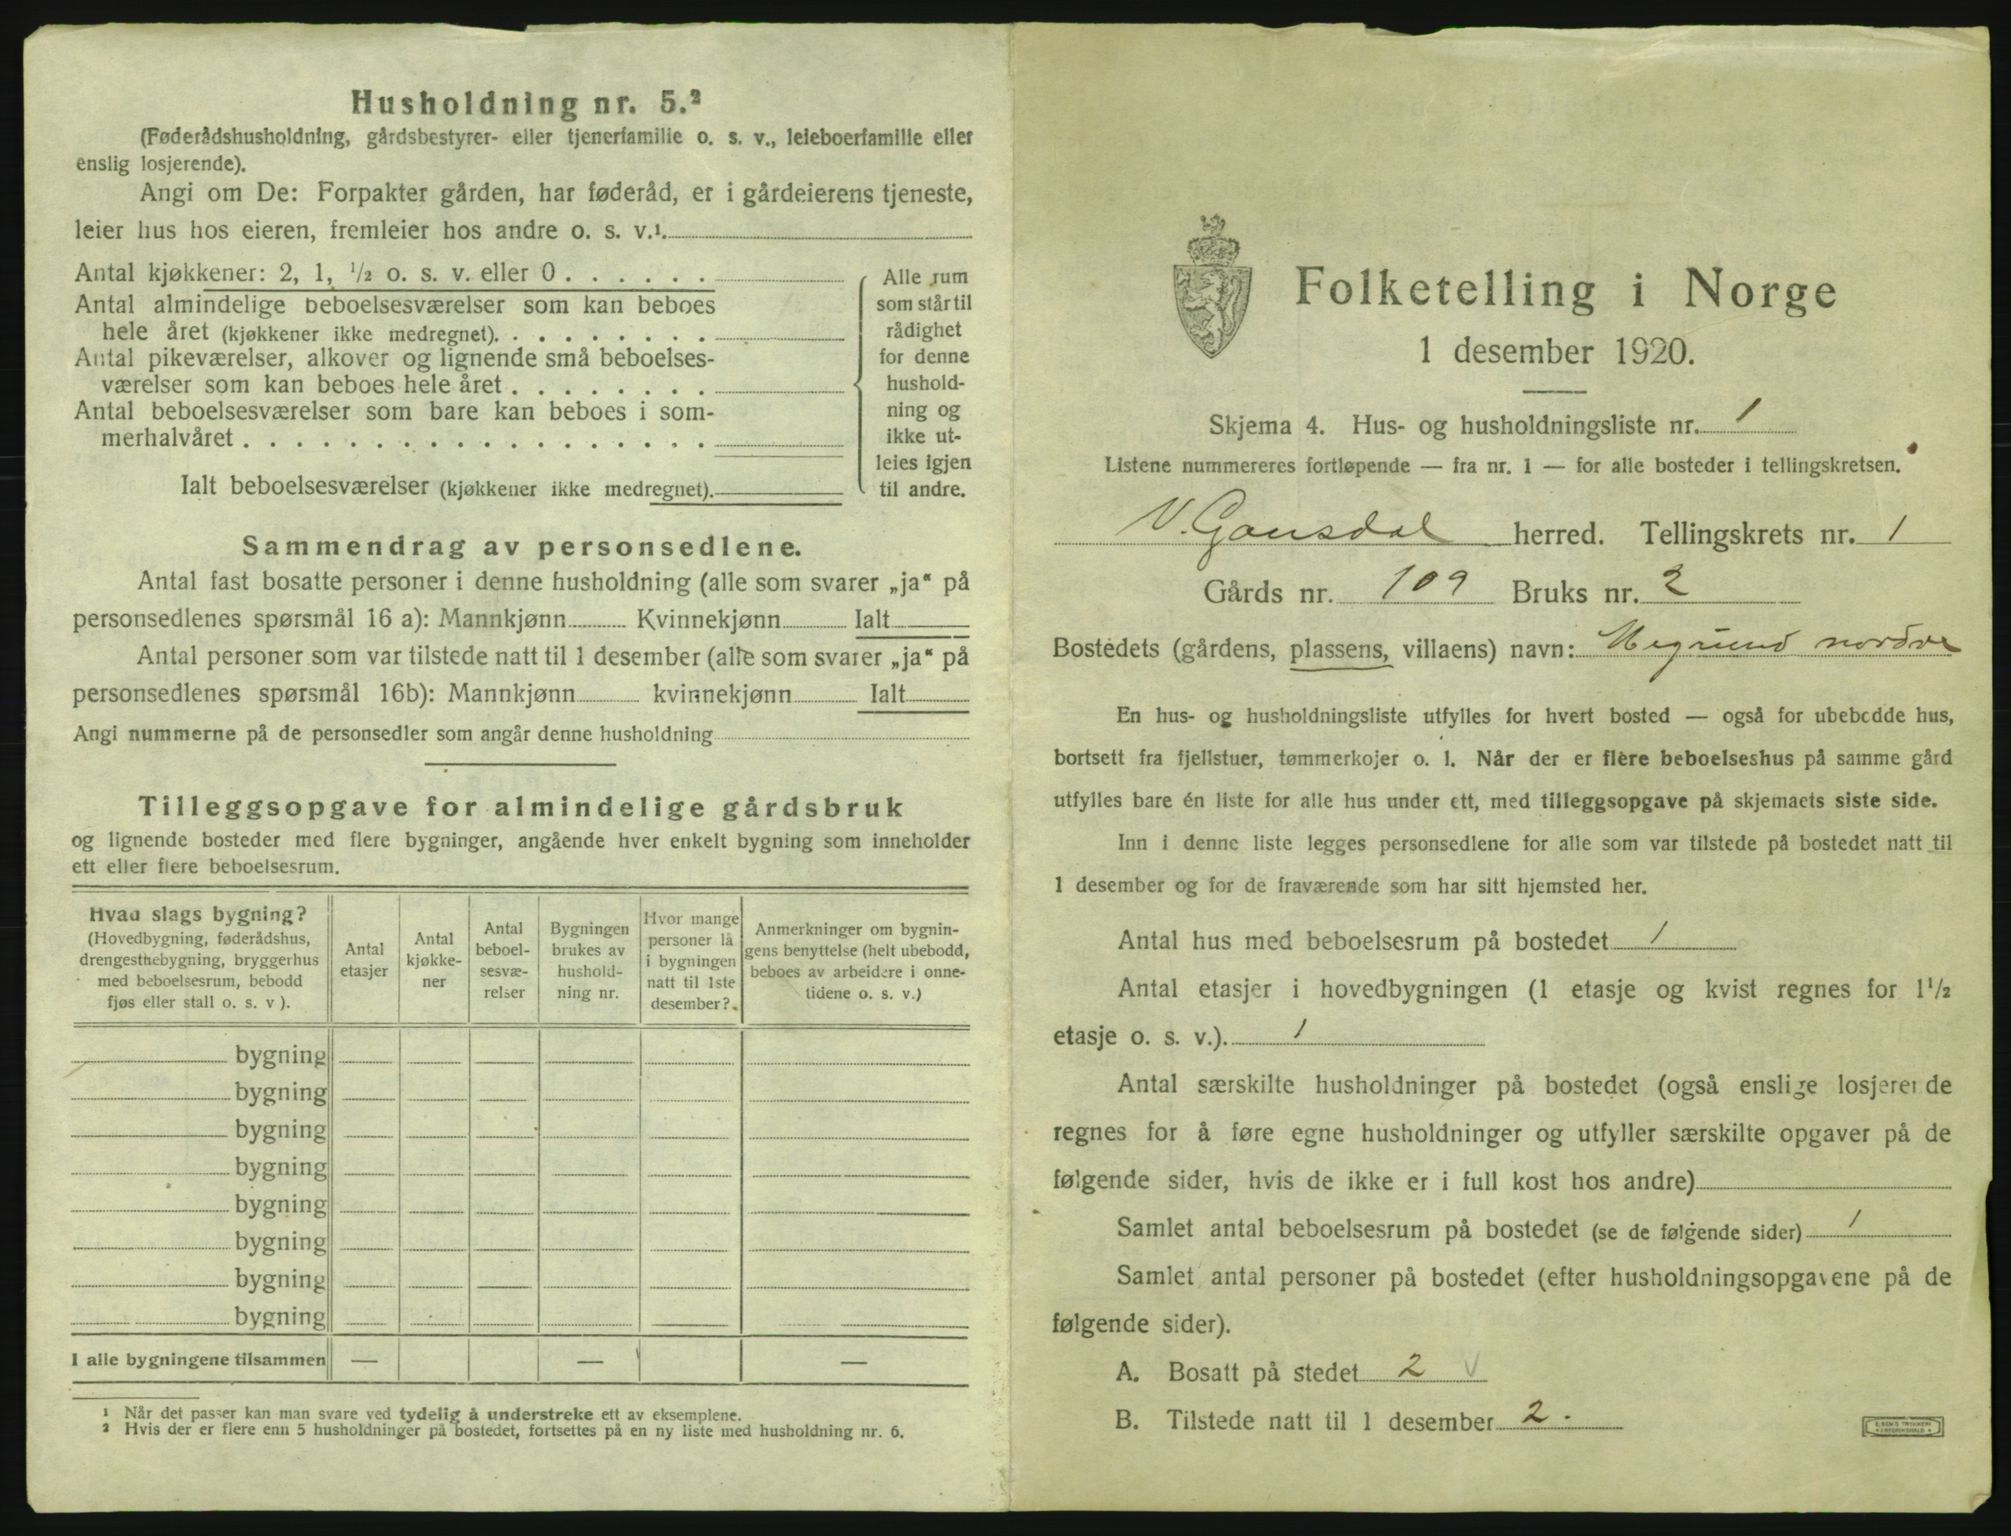 Husholdning nr. 5.²
(Føderådshusholdning, gårdsbestyrer- eller tjenerfamilie o. s. v., leieboerfamilie eller
enslig losjerende).
Angi om De: Forpakter gården, har føderåd, er i gårdeierens tjeneste,
leier hus hos eieren, fremleier hos andre o. s. v.¹.
Antal kjøkkener: 2, 1, ½ o. s. v. eller 0 . . . . . .
Antal almindelige beboelsesværelser som kan beboes
hele året (kjøkkener ikke medregnet). . . . . . . . .
Antal pikeværelser, alkover og lignende små beboelses-
værelser som kan beboes hele året . . . . . . . .
Antal beboelsesværelser som bare kan beboes i som-
merhalvåret . . . . . . . . . . . . . . . . . .
Ialt beboelsesværelser (kjøkkener ikke medregnet).
Alle rum
som står til
rådighet
for denne
hushold-
ning og
ikke ut-
leies igjen
til andre.
Sammendrag av personsedlene.
Antal fast bosatte personer i denne husholdning (alle som svarer „ja“ på
personsedlenes spørsmål 16 a): Mannkjønn Kvinnekjønn Ialt
Antal personer som var tilstede natt til 1 desember (alle som svarer „ja“ på
personsedlenes spørsmål 16b): Mannkjønn kvinnekjønn Ialt
Angi nummerne på de personsedler som angår denne husholdning
Tilleggsopgave for almindelige gårdsbruk
og lignende bosteder med flere bygninger, angående hver enkelt bygning som inneholder
ett eller flere beboelsesrum.
Hvad slags bygning?
(Hovedbygning, føderådshus,
drengestuebygning, bryggerhus
med beboelsesrum, bebodd
fjøs eller stall o. s. v ).
Antal
etasjer
Antal
kjøkke-
ner
Antal
beboel-
sesvæ-
relser
Bygningen
brukes av
hushold-
ning nr.
Hvor mange
personer lå
i bygningen
natt til 1ste
desember?
Anmerkninger om bygnin-
gens benyttelse (helt ubebodd,
beboes av arbeidere i onne-
tidene o. s. v.)
bygning
bygning
bygning
bygning
bygning
bygning
bygning
bygning
I alle bygningene tilsammen — — —
¹ Når det passer kan man svare ved tydelig å understreke ett av eksemplene.
² Hvis der er flere enn 5 husholdninger på bostedet, fortsettes på en ny liste med husholdning nr. 6.
Folketelling i Norge
1 desember 1920.
Skjema 4. Hus- og husholdningsliste nr. 1
Listene nummereres fortløpende — fra nr. 1 — for alle bosteder i tellingskretsen.
V. Gausdal herred. Tellingskrets nr. 1
Gårds nr. 109 Bruks nr. 2
Bostedets (gårdens, plassens, villaens) navn: nordre
En hus- og husholdningsliste utfylles for hvert bosted — også for ubebodde hus,
bortsett fra fjellstuer, tømmerkojer o. l. Når der er flere beboelseshus på samme gård
utfylles bare én liste for alle hus under ett, med tilleggsopgave på skjemaets siste side.
Inn i denne liste legges personsedlene for alle som var tilstede på bostedet natt til
1 desember og for de fraværende som har sitt hjemsted her.
Antal hus med beboelsesrum på bostedet 1
Antal etasjer i hovedbygningen (1 etasje og kvist regnes for 1½
etasje o. s. v.). 1
Antal særskilte husholdninger på bostedet (også enslige losjerende
regnes for å føre egne husholdninger og utfyller særskilte opgaver på de
følgende sider, hvis de ikke er i full kost hos andre)
Samlet antal beboelsesrum på bostedet (se de følgende sider) 1
Samlet antal personer på bostedet (efter husholdningsopgavene på de
følgende sider).
A. Bosatt på stedet 2 V
B. Tilstede natt til 1 desember 2.